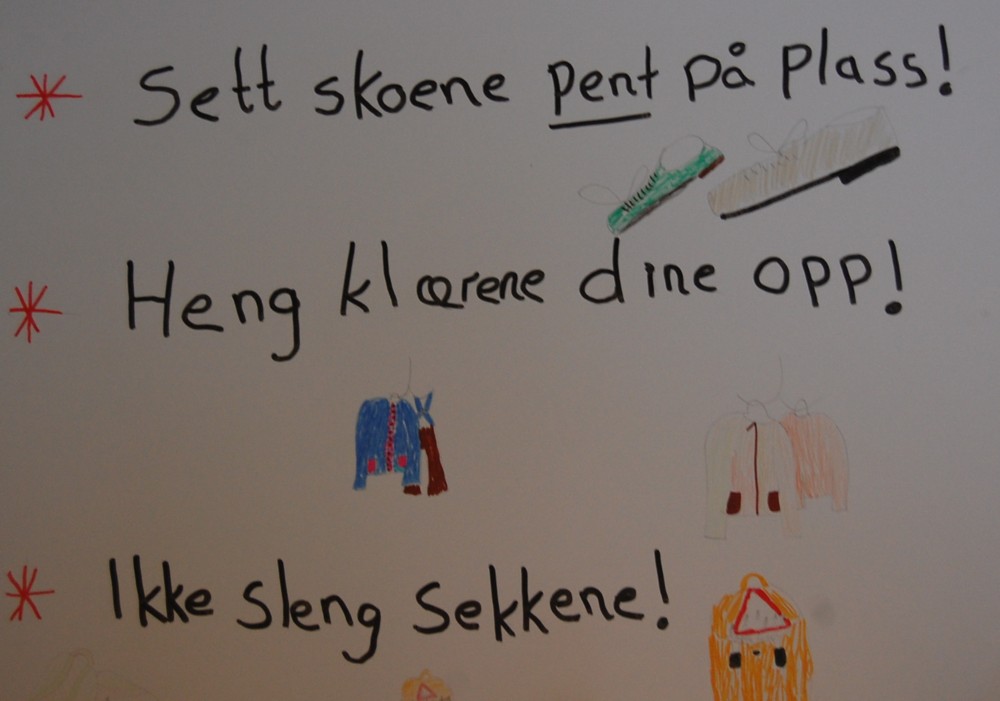 * Sett skoene pent på plass!
* Heng klærene dine opp!
* Ikke sleng sekkene!